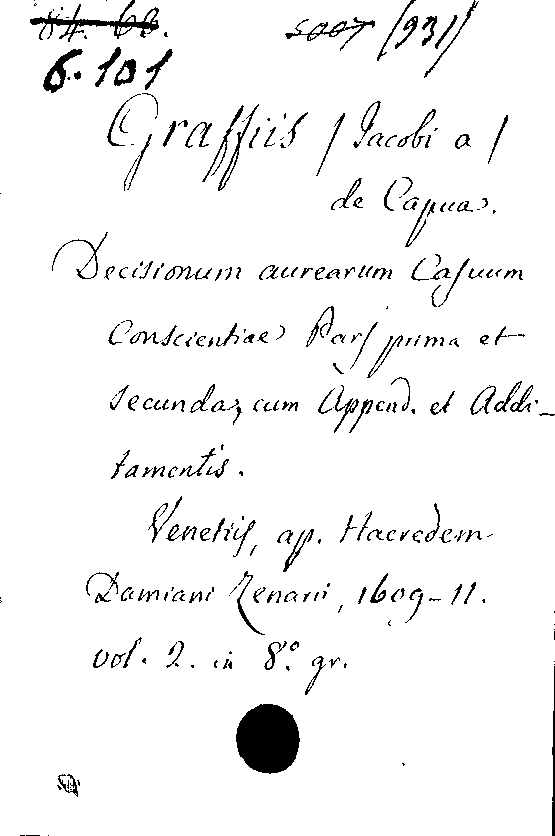 84. 68. 5007 (931)
6.101
Graffiis (Jacobi a)
de Capua.
Decisionum aurearum Casuum
Conscientiae Pars prima et
secunda, cum Append. et Addi-
tamentis.
Venetiis, ap. Haeredem
Damiani Zenarii, 1609-11.
vol. 2. in 8.° gr.